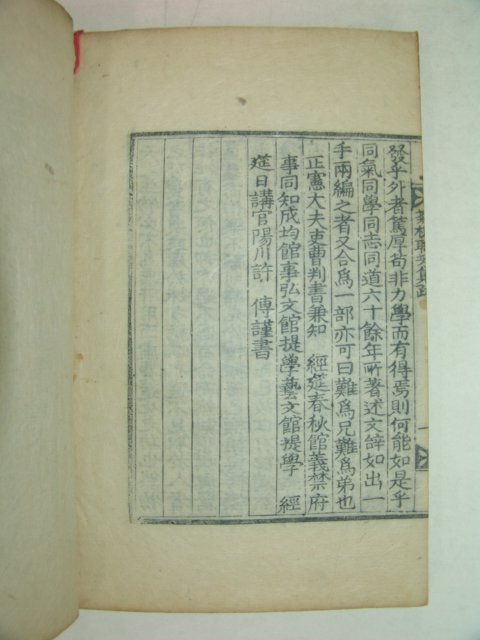 發乎外者篤厚苟非力學而有得焉則何能如是乎
同氣同學同志同道六十餘年所著述文辞如出一
手兩編之者又合爲一部亦可曰難爲兄難爲弟也
正憲大夫吏曹判書兼知　經筵春秋館義禁府
事同知成均館事弘文館提學藝文館提學　經
筵日講官陽川許　傳謹書